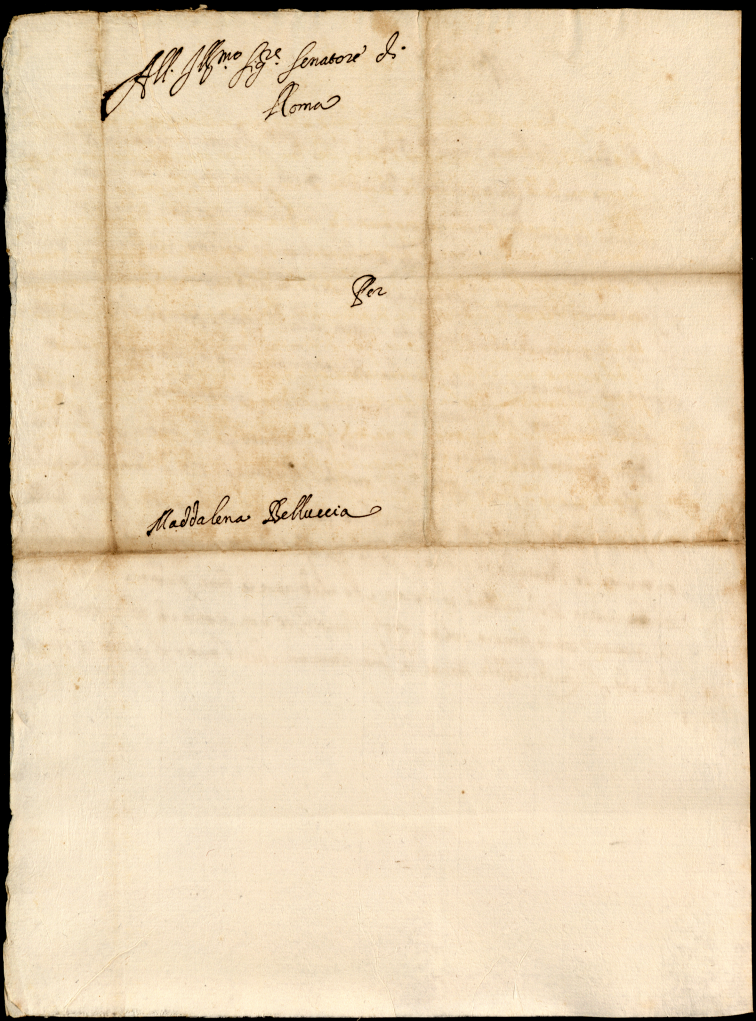 All. Ill.mo Sig.re Senatore di
Roma
Per
Maddalena Belluccia